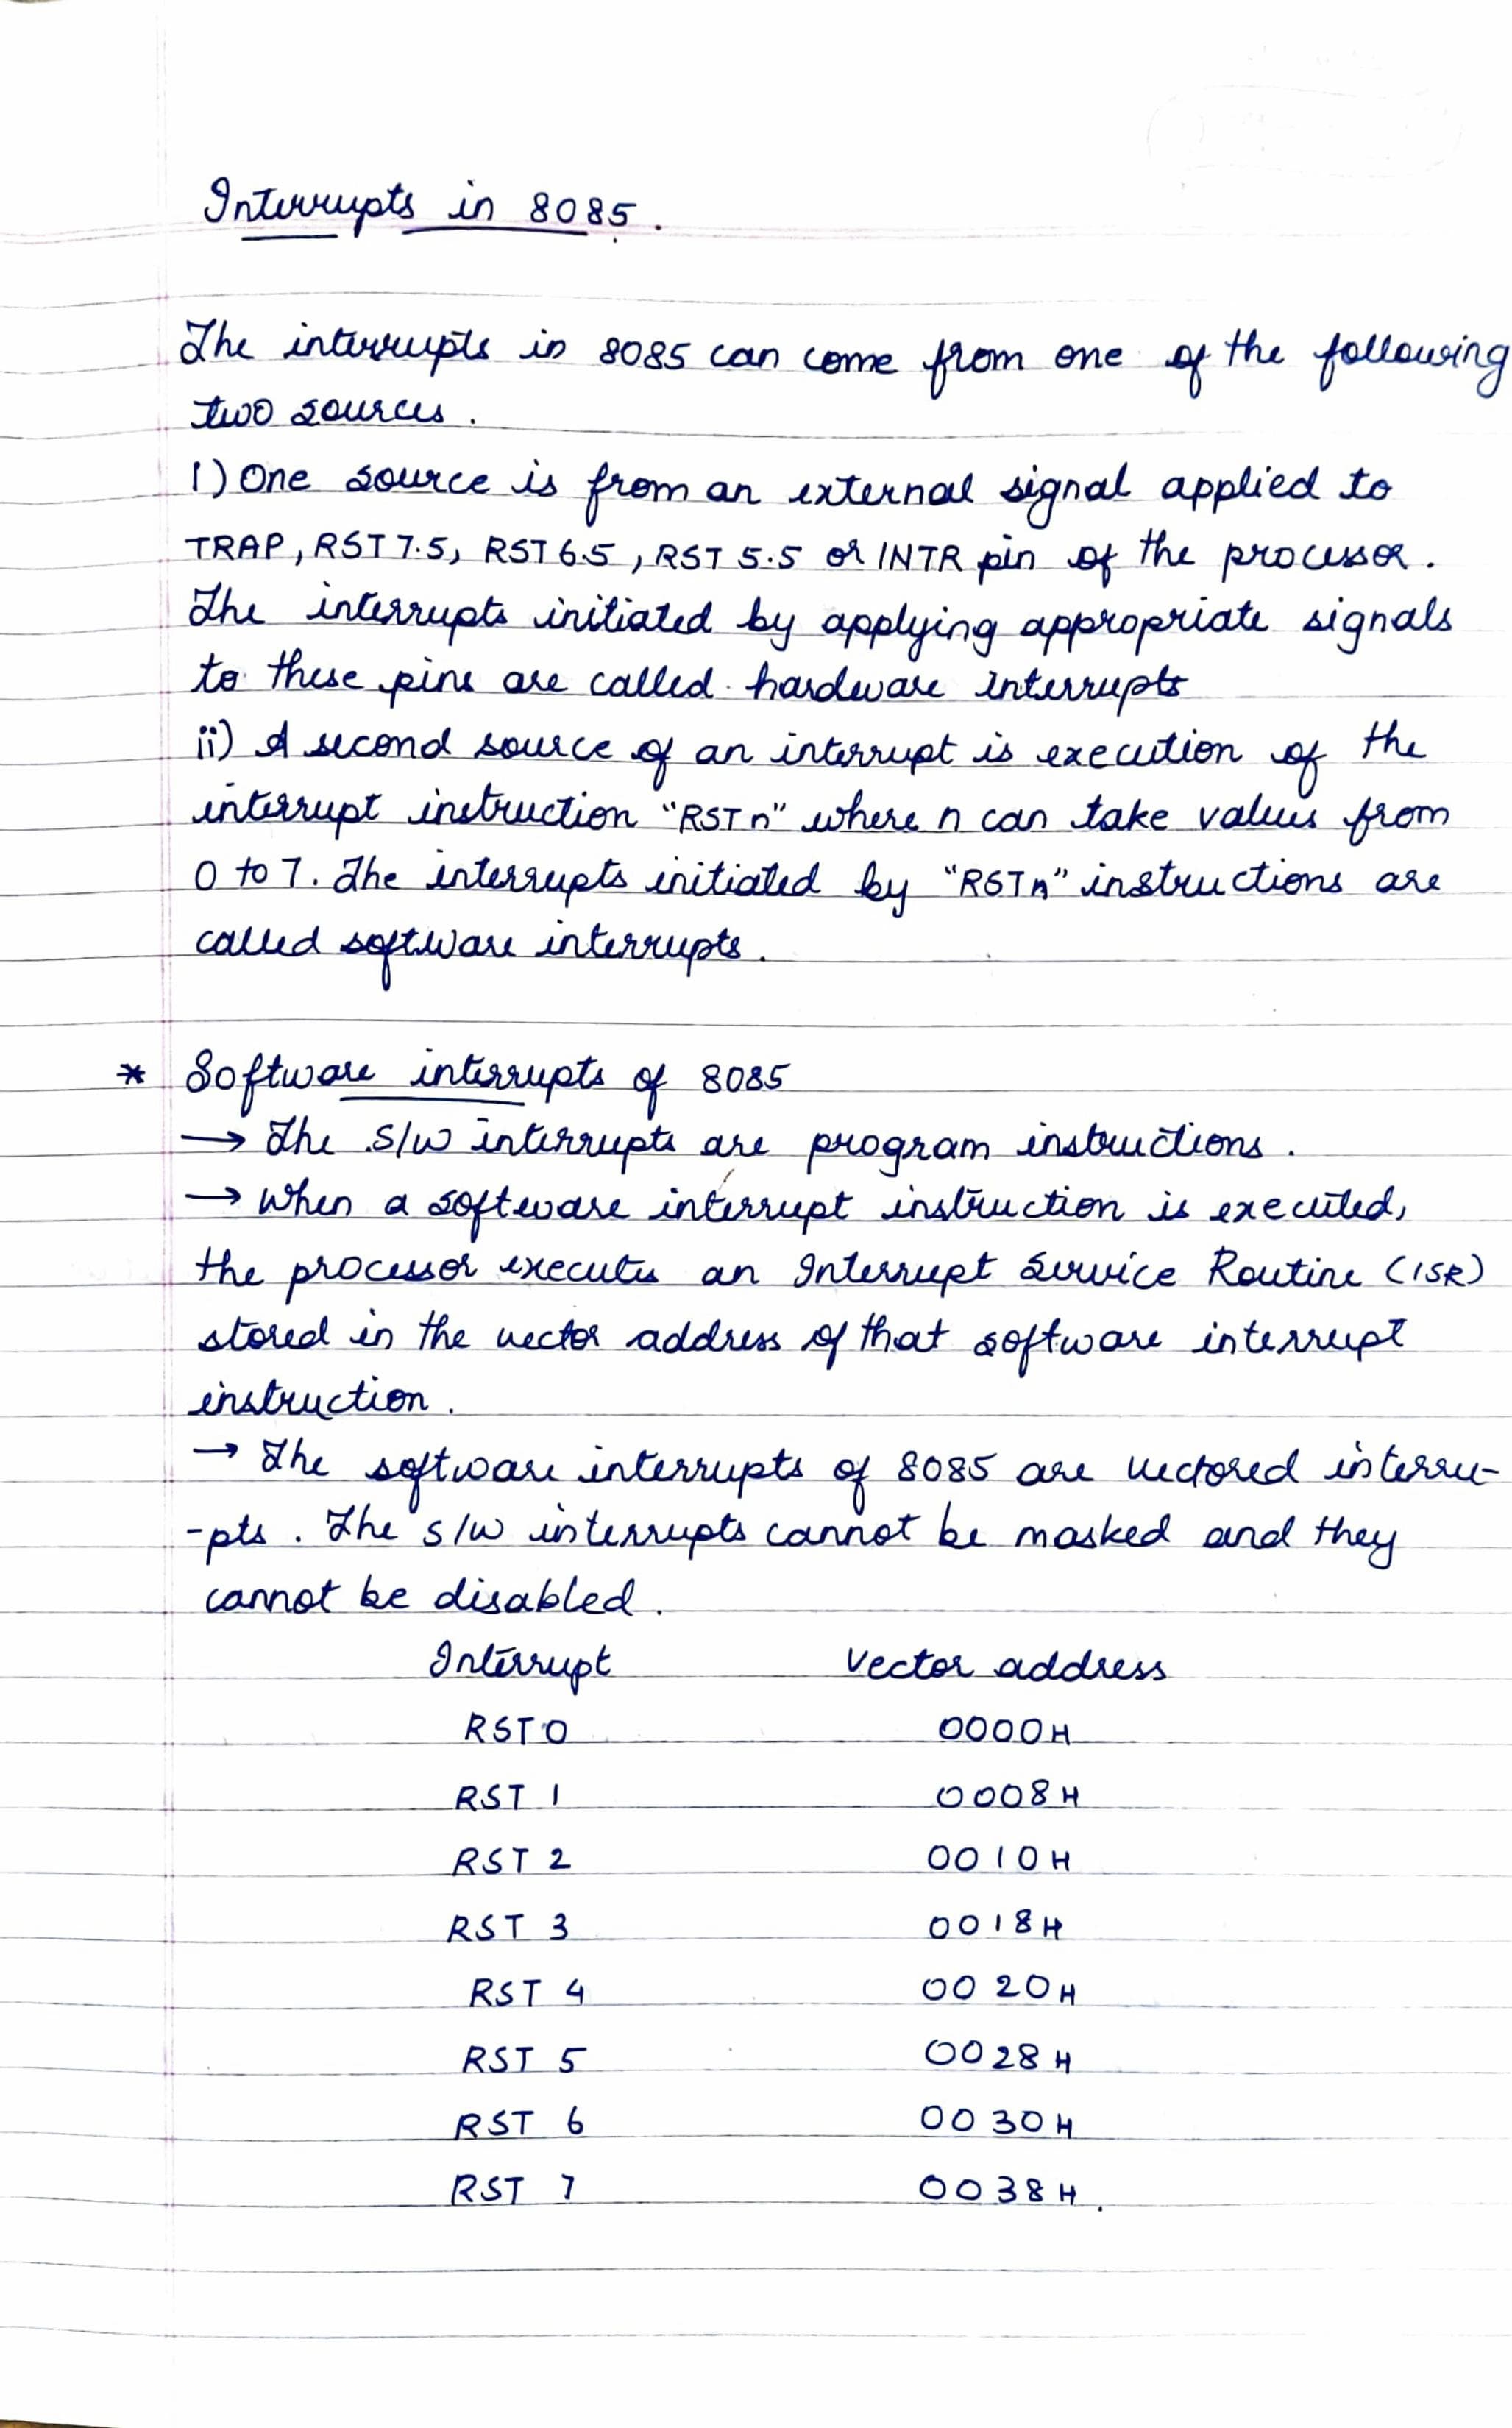 Interrupts in 8085.
The interrupts in 8085 can come from one of the following
two sources.
1) One source is from an external signal applied to
TRAP, RST 7.5, RST 6.5, RST 5.5 or INTR pin of the processor.
The interrupts initiated by applying appropriate signals
to these pins are called hardware interrupts
ii) A second source of an interrupt is execution of the
interrupt instruction "RST n" where n can take values from
0 to 7. The interrupts initiated by "RST n" instructions are
called software interrupts.
* Software interrupts of 8085
→ The S/W interrupts are program instructions.
→ When a software interrupt instruction is executed,
the processor executes an Interrupt Service Routine (ISR)
stored in the vector address of that software interrupt
instruction.
→ The software interrupts of 8085 are vectored interru-
-pts. The s/w interrupts cannot be masked and they
cannot be disabled.
Interrupt Vector address
RST 0 0000H
RST 1 0008H
RST 2 0010H
RST 3 0018H
RST 4 0020H
RST 5 0028H
RST 6 0030H
RST 7 0038H.